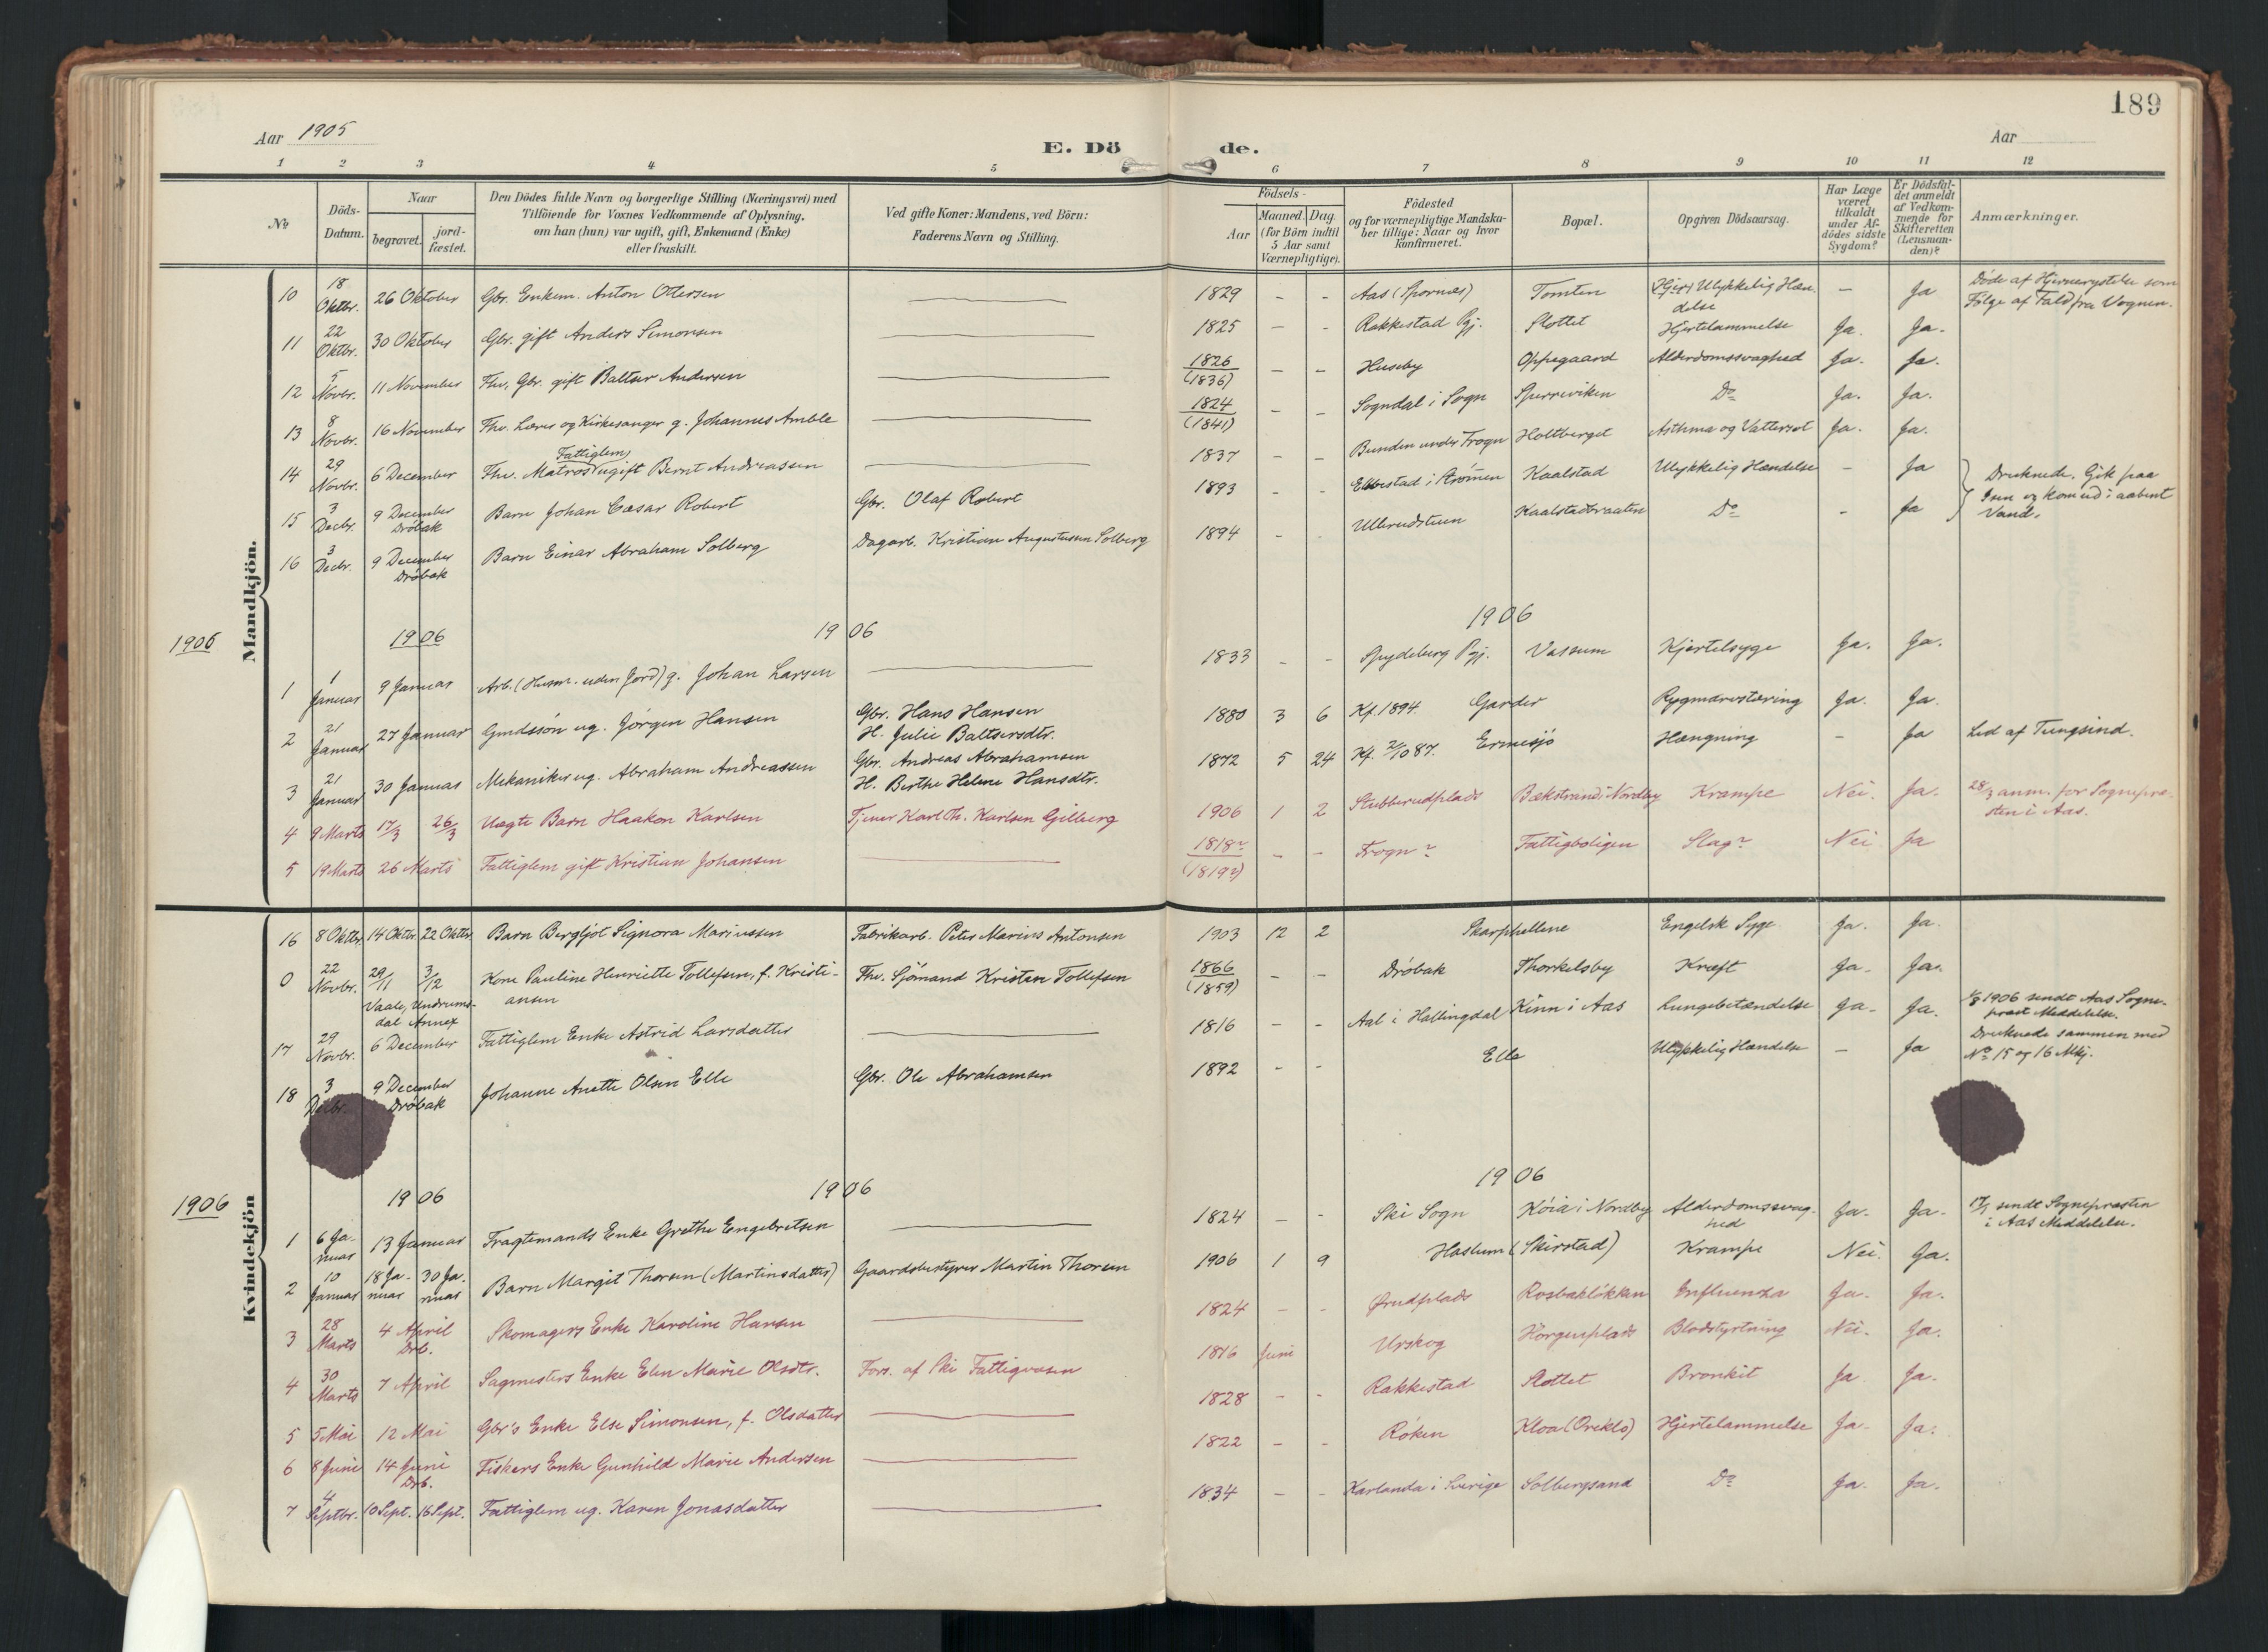 189
Aar 1905
E. Dö de.
Aar
1 2 3 4 5 6 7 8 9 10 11 12
No
Döds-Datum.
Naar
begravet.
jord-fæstet.
Den Dödes fulde Navn og borgerlige Stilling (Næringsvei) med
Tilföiende for Voxnes Vedkommende af Oplysning,
om han (hun) var ugift, gift, Enkemand (Enke)
eller fraskilt.
Ved gifte Koner: Mandens, ved Börn:
Faderens Navn og Stilling.
Födsels-
Aar
Maaned. Dag.
(for Börn indtil
5 Aar samt
Værnepligtige).
Födested
og for værnepligtige Mandska-
ber tillige: Naar og hvor
konfirmeret.
Bopæl.
Opgiven Dödsaarsag.
Har Læge
været
tilkaldt
under Af-
dödes sidste
Sygdom?
Er Dödsfal-
det anmeldt
af Vedkom-
mende for
Skifteretten
(Lensman-
den)?
Anmærkninger.
Mandkjön.
10 18 Oktbr. 26 Oktober Gbr. Enkem. Anton Ottersen 1829 - - Aas (Spornes) Tomten Ulykkelig Hæn-delse - Ja Døde af Hjernerystelse som Følge af Fald fra Vognen.
11 22 Oktbr. 30 Oktober Gbr. gift Anders Simonsen 1825 - - Rakkestad Pgj. Slottet Hjertelammelse Ja. Ja.
12 5 Novbr. 11 November Fhv. Gbr. gift Baltser Andersen 1826 (1836) - - Huseby Oppegaard Alderdomssvaghed Ja. Ja.
13 8 Novbr. 16 November Fhv. Lærer og Kirkesanger g. Johannes Amble 1824 (1841) - - Sogndal i Sogn Sperreviken Do Ja. Ja.
14 29 Novbr. 6 December Fhv. Matros Fattiglem ugift Bernt Andreassen 1837 - - Bunden under Frogn Holtberget Asthma og Vattersot Ja. Ja.
15 3 Decbr. 9 December Drøbak Barn Johan Cæsar Robert Gbr. Olaf Robert 1893 - - Ellestad i Strømmen Kaalstad Ulykkelig Hændelse - Ja Druknede. Gik paa Isen og kom ud i aabent Vand.
16 3 Decbr. 9 December Drøbak Barn Einar Abraham Solberg Dagarb. Kristian Augustussen Solberg 1894 - - Ullerudstuen Kaalstadbraaten Do - Ja
1906 1906 1906 1906
1 1 Januar 9 Januar Arb. (Husm. uden Jord) g. Johan Larsen 1833 - - Spydeberg Pgj. Vassum Kjertelsyge Ja. Ja.
2 21 Januar 27 Januar Gmdssøn ug. Jørgen Hansen Gbr. Hans Hansen H. Julie Baltsersdtr. 1880 3 6 Kf. 1894. Garder Rygmarvstæring Ja. Ja.
3 21 Januar 30 Januar Mekaniker ug. Abraham Andreassen Gbr. Andreas Abrahamsen H. Berthe Helene Hansdtr. 1872 5 24 Kf. 2/10 87. Ermesjø Hængning - Ja Led af Tungsind.
4 9 Marts 17/3 26/3 Uægte Barn Haakon Karlsen Tjener Karl Th. Karlsen Gilberg 1906 1 2 Stubberudplads Bækstrand i Nordby Krampe Nei. Ja. 28/3 anm. for Sognepræ-sten i Aas.
5 19 Marts 26 Marts Fattiglem gift Kristian Johansen 1818? (1819?) - - Frogn? Fattigboligen Slag? Nei Ja
Kvindekjön
16 8 Oktbr. 14 Oktbr. 22 Oktbr. Barn Bergljot Signora Mariussen Fabrikarb. Peter Marius Antonsen 1903 12 2 Skarphellene Engelsk Syge Ja. Ja.
0 22 Novbr. 29/11 3/12 Vaale, Undrums-dal Annex Kone Pauline Henriette Tollefsen, f. Kristi-ansen Fhv. Sjømand Kristen Tollefsen 1866 (1859) - - Drøbak Thorkelsby Kræft Ja. Ja.
17 29 Novbr. 6 December Fattiglem Enke Astrid Larsdatter 1816 - - Aal i Hallingdal Kinn i Aas Lungebetændelse Ja. Ja. 1906 sendt Aas Sogne-præst Meddelelse.
18 3 Decbr. 9 December Drøbak Johanne Anette Olsen Elle Gbr. Ole Abrahamsen 1892 - - Elle Ulykkelig Hændelse - Ja Druknede sammen med No 15 og 16 Mkj.
1906 1906 1906 1906
1 6 Januar 13 Januar Fragtemands Enke Grethe Engebretsen 1824 - - Ski Sogn Køia i Nordby Alderdomssvag-hed Ja. Ja. 17/1 sendt Sognepresten i Aas Meddelelse.
2 10 Januar 18 Januar 30 Januar Barn Margit Thorsen (Martinsdatter) Gaardsbestyrer Martin Thorsen 1906 1 9 Haslum (Skirstad) Krampe Nei. Ja.
3 28 Marts 4 April Drb. Skomagers Enke Karoline Hansen 1824 - - Ørudplads Rosbakløkken Influenza Ja. Ja.
4 30 Marts 7 April Sagmesters Enke Elen Marie Olsdtr. Fors. af Ski Fattigvæsen 1816 Juni Urskog Horgenplads Blodstyrtning Nei. Ja.
5 5 Mai 12 Mai Gbr's Enke Else Simonsen, f. Olsdatter 1828 - - Rakkestad Slottet Bronkit Ja Ja.
6 8 Juni 14 Juni Drb. Fiskers Enke Gunhild Marie Andersen 1822 - - Røken Kloa (Oreklo) Hjertelammelse Ja. Ja.
7 4 Septbr. 10 Sept. 16 Sept. Fattiglem ug. Karen Jonasdatter 1834 - - Karlanda i Sverige Solbergsand Do Ja. Ja.